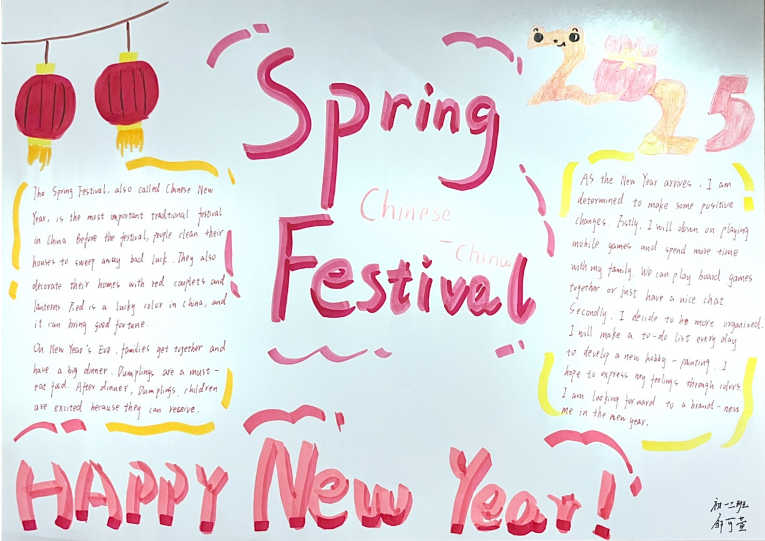 Spring
Festival
Chinese
- China
2025
The Spring Festival, also called Chinese New
Year, is the most important traditional festival
in China. Before the festival, people clean their
houses to sweep away bad luck. They also
decorate their homes with red couplets and
lanterns. Red is a lucky color in China, and
it can bring good fortune.
On New Year's Eve, families get together and
have a big dinner. Dumplings are a must-
eat food. After dinner, Dumplings, children
are excited because they can reserve.
As the New Year arrives, I am
determined to make some positive
changes. Fistly, I will down on playing
mobile games and spend more time
with my family. We can play board games
together or just have a nice chat.
Secondly, I decide to be more organized.
I will make a to-do list every day
to develop a new hobby - painting. I
hope to express my feelings through colors.
I am looking forward to a brand-new
me in the new year.
HAPPY New Year!
初一二班